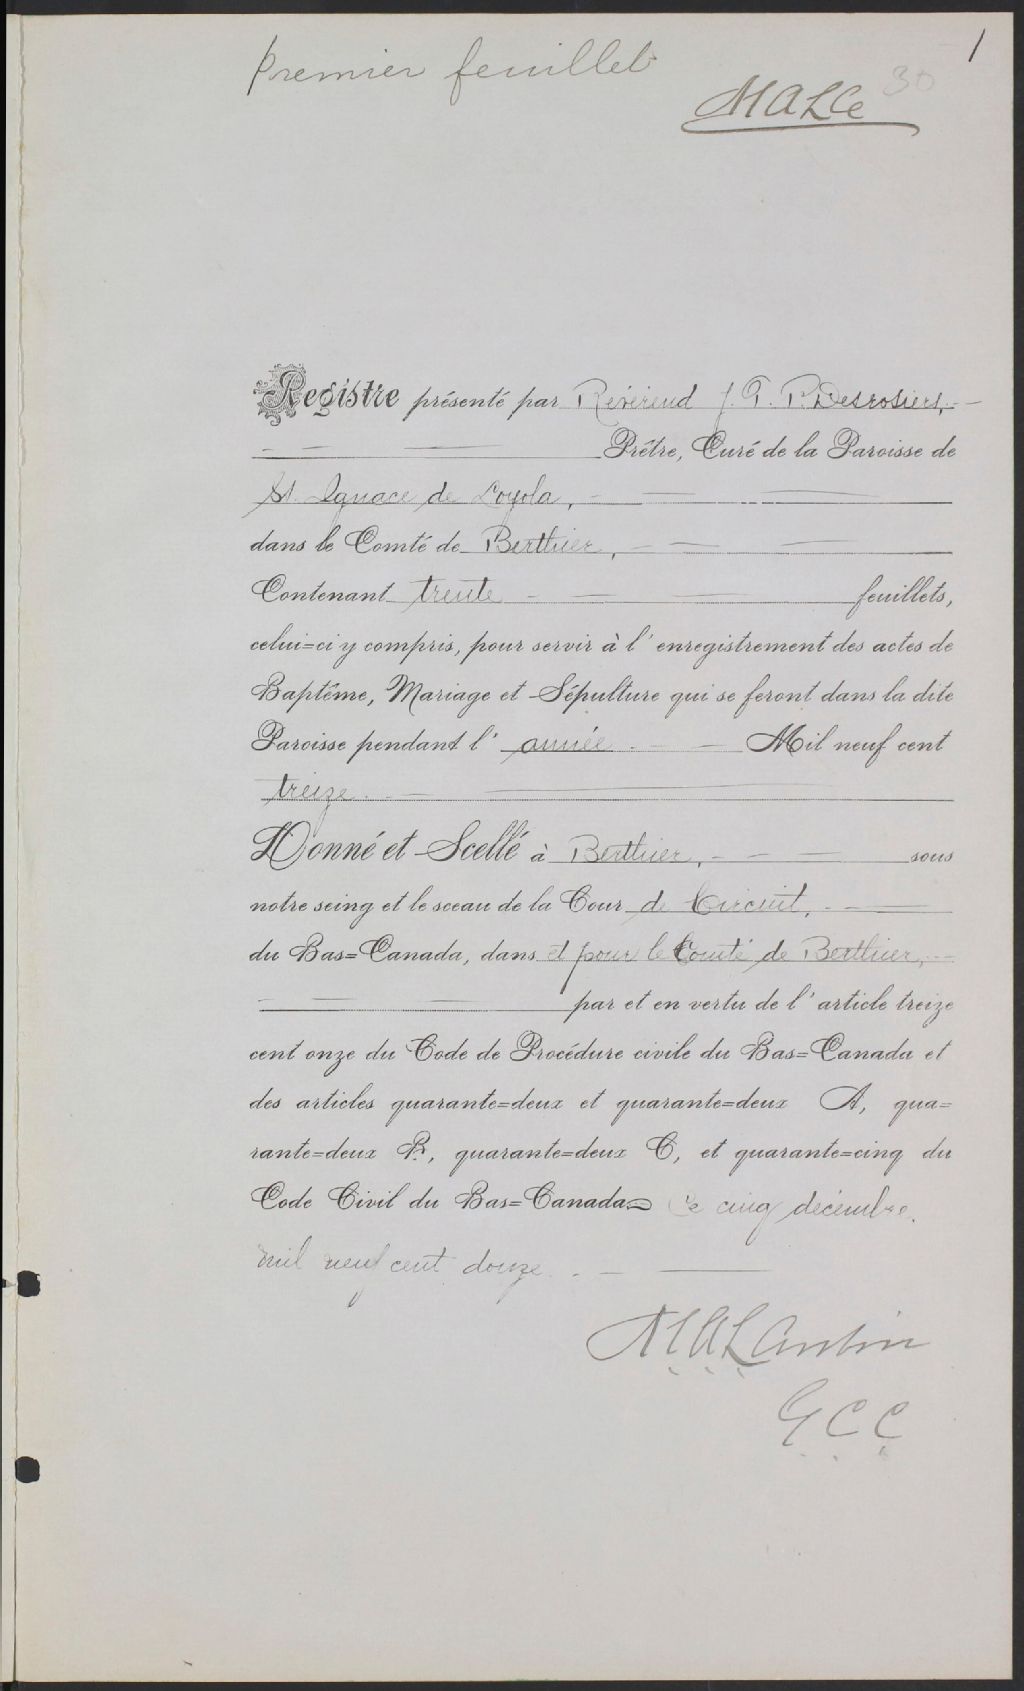 1
premier feuillet
30
MALCe
Registre présenté par Révérend J. G. P. Desrosiers,
Prêtre, Curé de la Paroisse de
St. Ignace de Loyola,
dans le Comté de Berthier,
Contenant trente feuillets,
celui=ci y compris, pour servir à l'enregistrement des actes de
Baptême, Mariage et Sépulture qui se feront dans la dite
Paroisse pendant l' année Mil neuf cent
treize.
Donné et Scellé à Berthier, sous
notre seing et le sceau de la Cour de Circuit,
du Bas=Canada, dans et pour le Comté de Berthier,
par et en vertu de l'article treize
cent onze du Code de Procédure civile du Bas=Canada et
des articles quarante=deux et quarante=deux A, qua=
rante=deux B, quarante=deux C, et quarante=cinq du
Code Civil du Bas=Canada ce cinq décembre,
mil neuf cent douze.
G C C